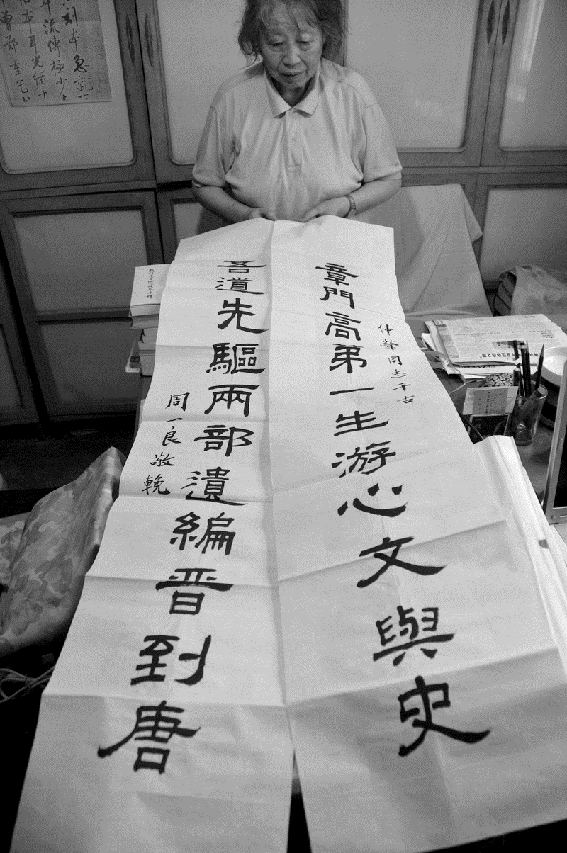 章門高第一生游心文與史
仲犖同志千古
吾道先驅兩部遺編晋到唐
周一良敬輓